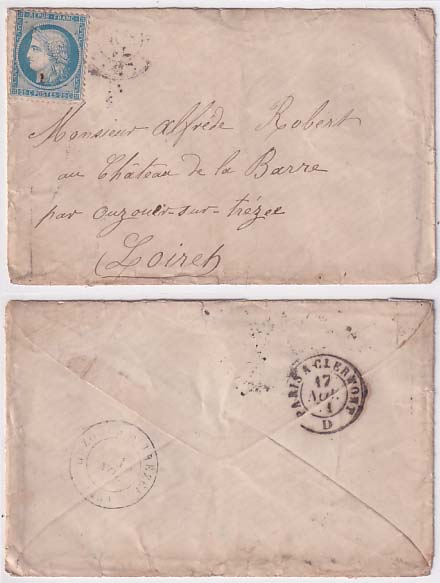 REPUB · FRANC ·
25 C POSTES 25 C
Monsieur Alfrède Robert
au Château de la Barre
par Ouzouer-sur-trézée
Loiret
PARIS A CLERMONT
17
AOU.
D